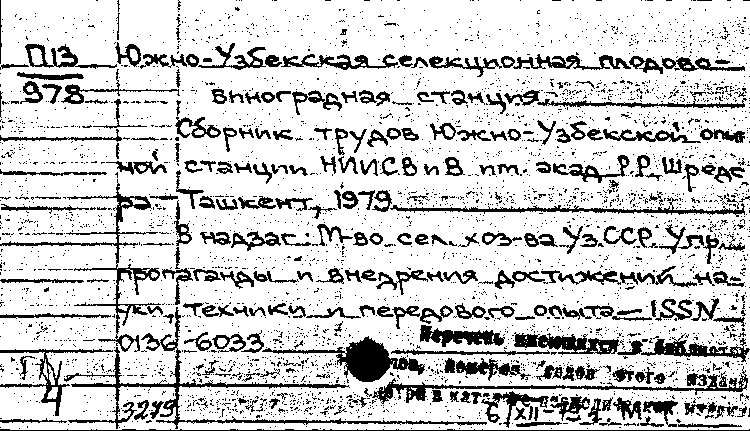 П13 Южно-Узбекская селекционная плодово-
978 виноградная станция.
Сборник трудов Южно-Узбекской опыт
ной станции НИИСВиВ им. акад. Р.Р. Шреде
ра.- Ташкент, 1979.
В надзаг.: М-во сел. хоз-ва УзССР. Упр.
пропаганды и внедрения достижений на-
уки, техники и передового опыта.- ISSN
0136-6033
Перечень имеющихся в библиотеке
номеров, годов этого издан
в
3279 6/XII-